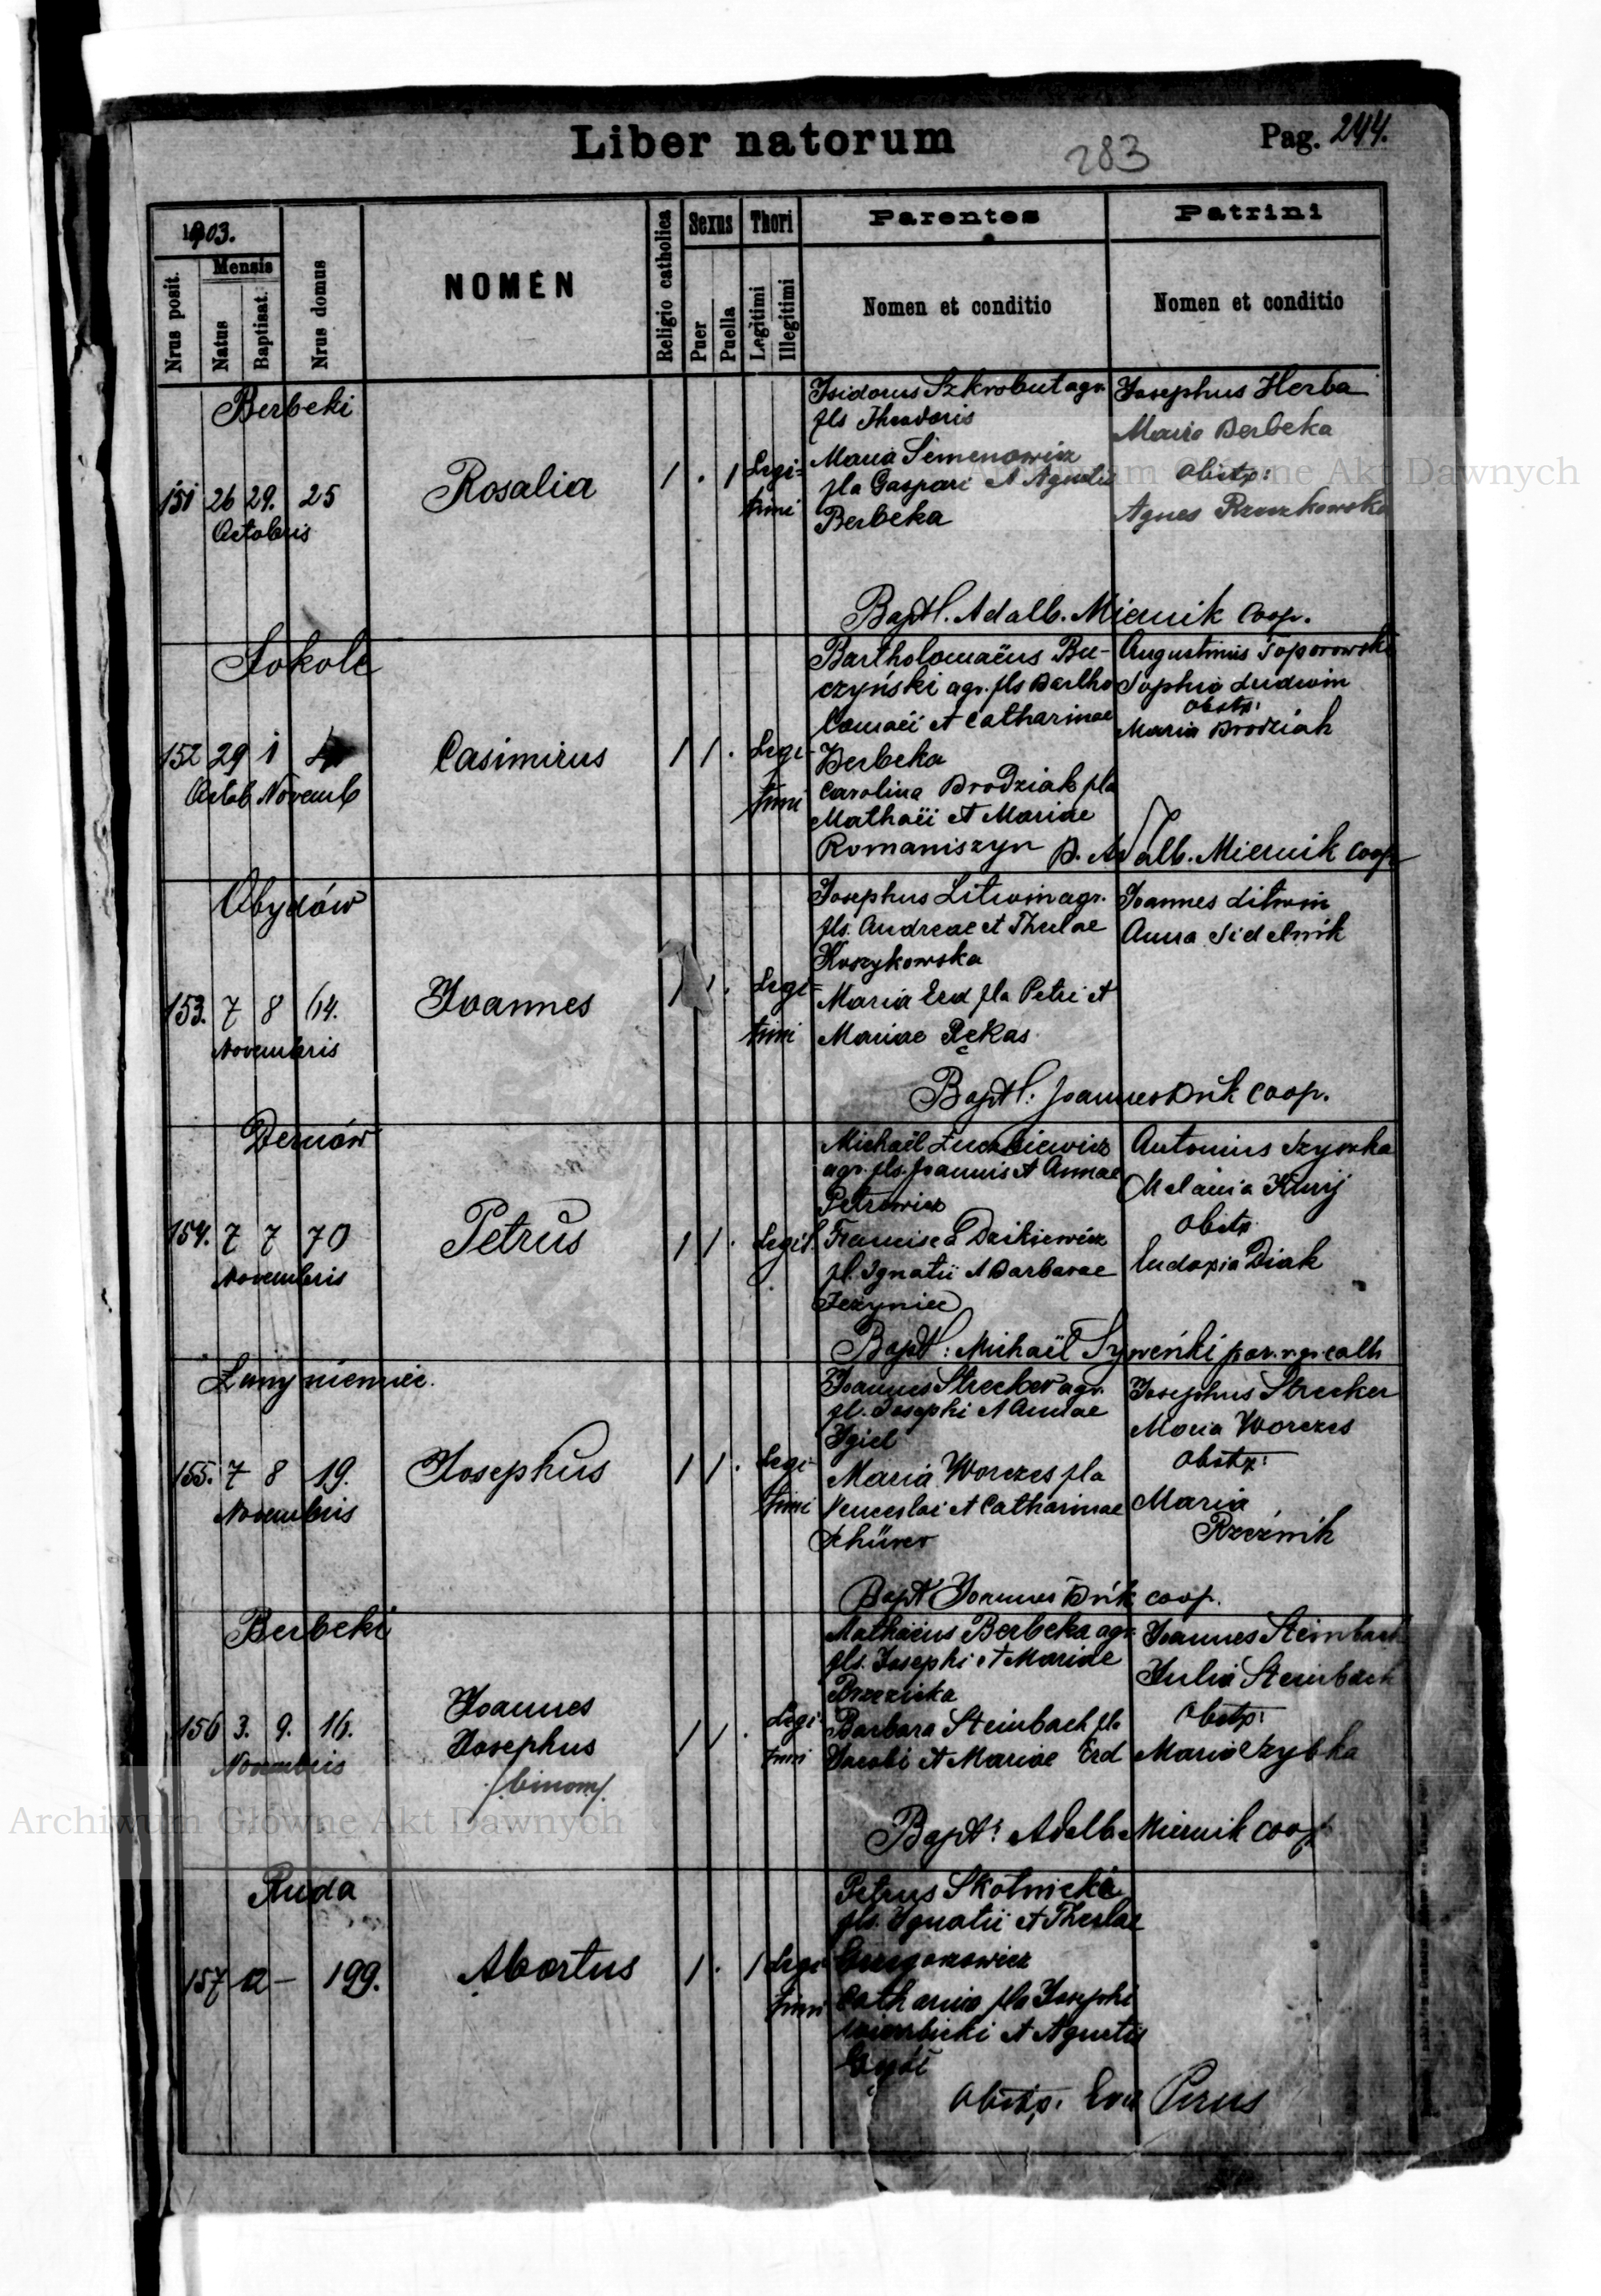 Liber natorum
Pag. 244.
283
1903.
Mensis
Nrus posit.
Natus
Baptisat.
Nrus domus
NOMEN
Religio catholica
Sexus
Puer
Puella
Thori
Legitimi
Illegitimi
Parentes
Nomen et conditio
Patrini
Nomen et conditio
Berbeki
151 26 29. 25
Octobris
Rosalia
1 . 1
Legi=
timi
Isidorus Szkrobut agr.
fls Theodoris
Maria Semenowicz
fla Gaspari et Agnetis
Berbeka
Josephus Herba
Maria Berbeka
Obstp:
Agnes
Bapt. Adalb. Miernik coop.
Sokole
152 29 1 4
Octob. Novemb
Casimirus
1 1 .
Legi-
timi
Bartholomaëus Bu-
czyński agr. fls Bartho
lomaëi et Catharinae
Berbeka
Carolina Brodziak fla
Mathaëi et Mariae
Romaniszyn
Augustinus Toporowski
Sophia Ludwin
Obstp:
Maria Brodziak
B. Adalb. Miernik coop
Obydów
153. 7 8 64.
Novembris
Joannes
1 1 .
Legi=
timi
Josephus Litwin agr.
fls. Andreae et Theclae
Koszykowska
Maria Erd fla Petri et
Mariae Pękas
Joannes Litwin
Anna Sidelnik
Bapt: Joannes Drik coop.
Dernów
154. 7 7 70
Novembris
Petrus
1 1 .
Legit.
Michaël Łuczkiewicz
agr. fls. Joannis et Annae
Petrowicz
Francisca Dackiewicz
fl. Ignatii et Barbarae
Antonius Szyszka
Melania
Obstp.
Eudoxia Diak
Bapt: Michaël
Łany niemiec.
155. 7 8 19.
Novembris
Josephus
1 1 .
Legi-
timi
Joannes Strecker agr.
fl. Josephi et Annae
Igiel
Maria Worczes fla
Venceslai et Catharinae
Schürer
Josephus Strecker
Maria Worczes
Obstp:
Maria
Rzeźnik
Bapt Joannes Drik coop.
Berbeki
156 3. 9. 16.
Novembris
Joannes
Josephus
/binom/.
1 1 .
Legi-
timi
Mathaëus Berbeka agr.
fls. Josephi et Mariae
Brzezicka
Barbara Steinbach fla
Jacobi et Mariae Erd
Joannes Steinbach
Julia Steinbach
Obstp:
Maria Szybka
Bapt: Adalb. Miernik coop
Ruda
157 12 — 199.
Abortus
1 . 1
Legi
timi
Petrus Skotnicki
fls. Ignatii et Theclae
Grzegorzewicz
Catharina fla Josephi
et Agnetis
Obstp. Eva Pirus
Archiwum Główne Akt Dawnych
Archiwum Główne Akt Dawnych